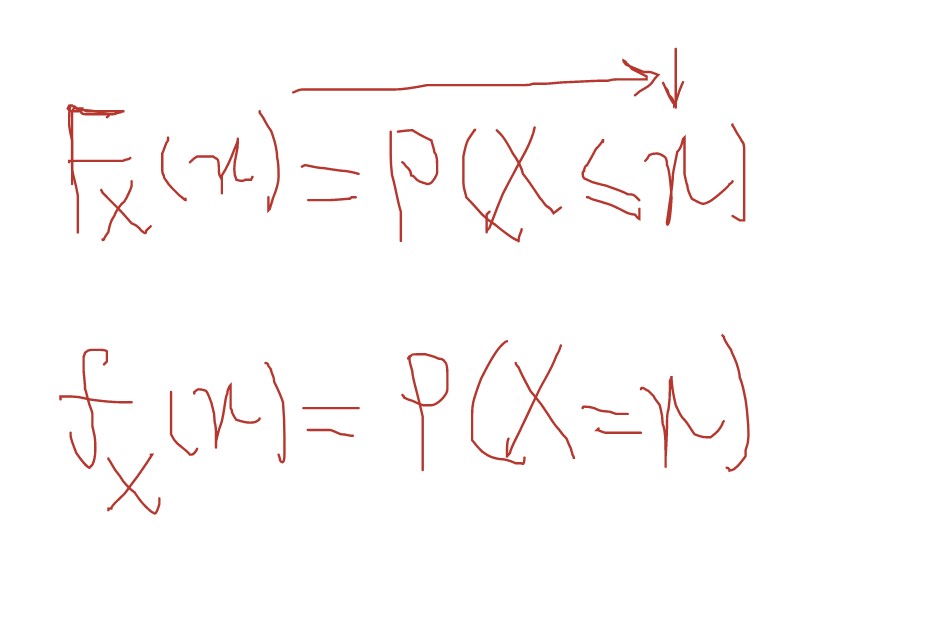 F_X(x) = P(X ≤ x)
f_X(x) = P(X = x)